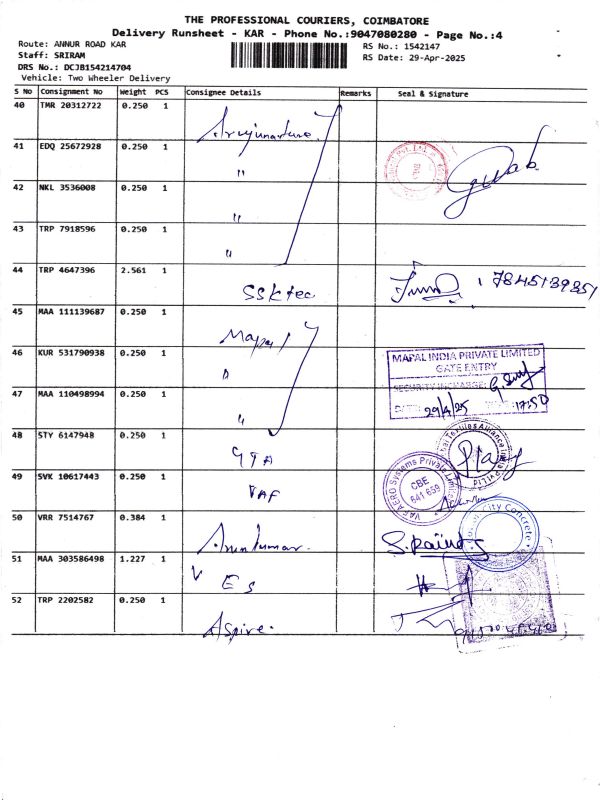 THE PROFESSIONAL COURIERS, COIMBATORE
Delivery Runsheet - KAR - Phone No.:9047080280 - Page No.:4
Route: ANNUR ROAD KAR
RS No.: 1542147
Staff: SRIRAM
RS Date: 29-Apr-2025
DRS No.: DCJB154214704
Vehicle: Two Wheeler Delivery
S No Consignment No Weight PCS Consignee Details Remarks Seal & Signature
40 TMR 20312722 0.250 1
41 EDQ 25672928 0.250 1 "
42 NKL 3536008 0.250 1 "
43 TRP 7918596 0.250 1 "
44 TRP 4647396 2.561 1 SSK tec 7845139851
45 MAA 111139687 0.250 1 Mapal
46 KUR 531790938 0.250 1 "
MAPAL INDIA PRIVATE LIMITED
GATE ENTRY
SECURITY INCHARGE:
47 MAA 110498994 0.250 1 "
DATE: 29/4/25 17:50
48 STY 6147948 0.250 1 GTA
Textiles Alliance India Pvt Ltd
49 SVK 10617443 0.250 1 VAF
AERO Systems Private Limited
CBE
641 659
50 VRR 7514767 0.384 1 Arunkumar.
City Concrete
51 MAA 303586498 1.227 1 V E S
52 TRP 2202582 0.250 1 Aspire.